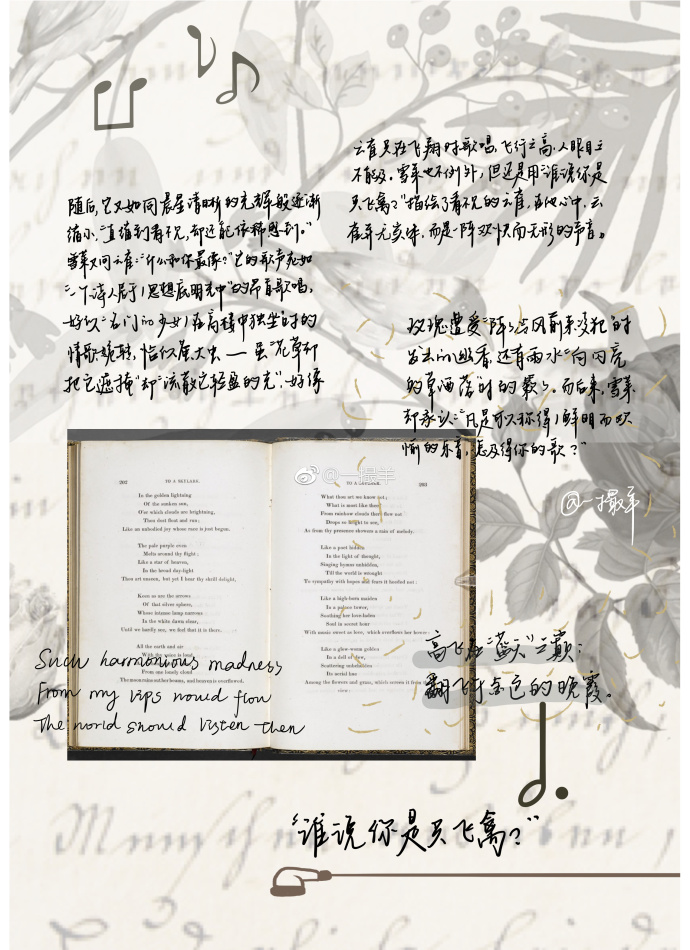 云雀只在飞翔时歌唱,飞行之高,人眼目之
不能及。雪莱也不例外,但还是用“谁说你是
只飞禽?”描绘了看不见的云雀,在他心中,云
雀并无实体,而是一阵欢快而无形的声音。
随后,它又如同晨星清晰的光辉般逐渐
缩小,“直缩到看不见,却还能依稀感到。”
雪莱又问云雀:“什么和你最像?”它的歌声宛如
“一个诗人居于思想底明光中”的昂首歌唱,
好似“名门的少女”在高楼中独坐时的
情歌旋转,恰似萤火虫——虽“花草却
把它遮掩”却“流散它轻盈的光”,好像
玫瑰遭受“阵阵热风前来侵犯”时
发出的幽香,还有雨水“向闪亮
的草洒落时”的声。而后来,雪莱
却承认:“凡是可以称得鲜明而欢
愉的乐音,怎及得你的歌?”
@一撮羊
@一撮羊
202 TO A SKYLARK.
In the golden lightning
Of the sunken sun,
O'er which clouds are brightning,
Thou dost float and run;
Like an unbodied joy whose race is just begun.
The pale purple even
Melts around thy flight;
Like a star of heaven,
In the broad day-light
Thou art unseen, but yet I hear thy shrill delight,
Keen as are the arrows
Of that silver sphere,
Whose intense lamp narrows
In the white dawn clear,
Until we hardly see, we feel that it is there.
All the earth and air
With thy voice is loud,
From one lonely cloud
The moon rains out her beams, and heaven is overflowed.
TO A SKYLARK. 203
What thou art we know not;
What is most like thee?
From rainbow clouds there flow not
Drops so bright to see,
As from thy presence showers a rain of melody.
Like a poet hidden
In the light of thought,
Singing hymns unbidden,
Till the world is wrought
To sympathy with hopes and fears it heeded not:
Like a high-born maiden
In a palace tower,
Soothing her love-laden
Soul in secret hour
With music sweet as love, which overflows her bower:
Like a glow-worm golden
In a dell of dew,
Scattering unbeholden
Its aerial hue
Among the flowers and grass, which screen it from the
view:
Such harmonious madness
From my lips would flow
The world should listen then
高飞在“蓝天”之巅;
翻飞于金色的晚霞。
“谁说你是只飞禽?”